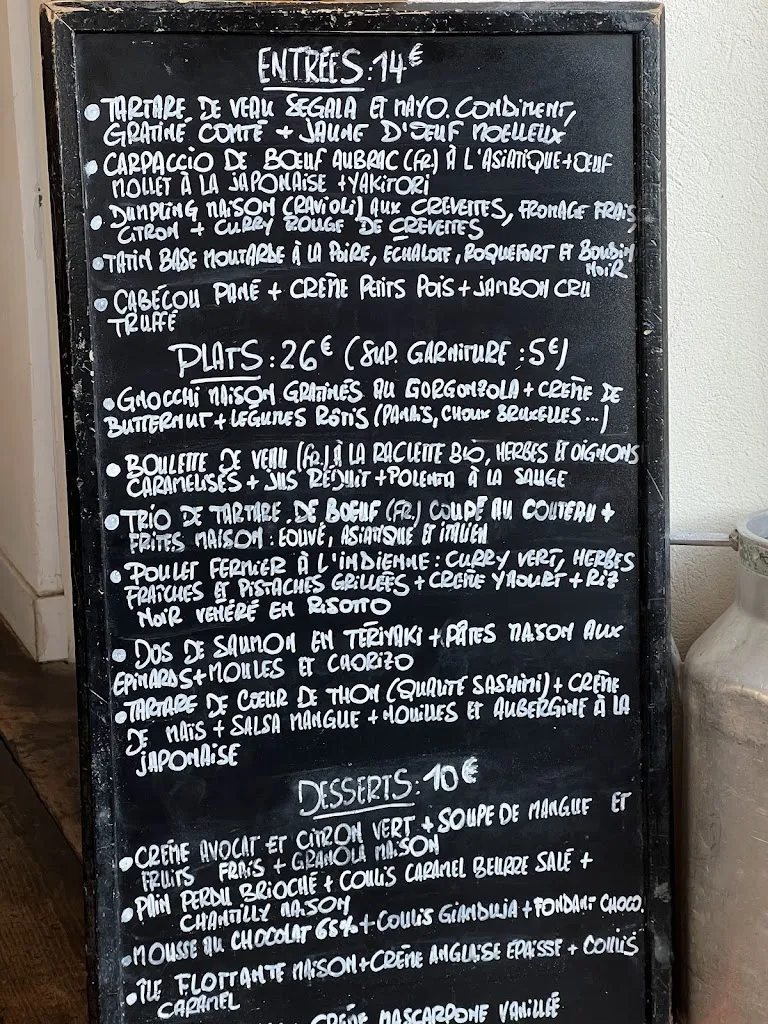 ENTRÉES : 14€
TARTARE DE VEAU SEGALA ET MAYO. CONDIMENT,
GRATINÉ COMTÉ + JAUNE D'ŒUF MOELLEUX
CARPACCIO DE BŒUF AUBRAC (FR) À L'ASIATIQUE + ŒUF
MOLLET À LA JAPONAISE + YAKITORI
DUMPLING MAISON (RAVIOLI) AUX CREVETTES, FROMAGE FRAIS,
CITRON + CURRY ROUGE DE CREVETTES
TATIN BASE MOUTARDE À LA POIRE, ECHALOTE, ROQUEFORT ET BOUDIN
NOIR
CABÉCOU PANÉ + CRÈME PETITS POIS + JAMBON CRU
TRUFFÉ
PLATS : 26€ (SUP. GARNITURE : 5€)
GNOCCHI MAISON GRATINÉS AU GORGONZOLA + CRÈME DE
BUTTERNUT + LÉGUMES RÔTIS (PANAIS, CHOUX BRUXELLES ...)
BOULETTE DE VEAU (FR) À LA RACLETTE BIO, HERBES ET OIGNONS
CARAMÉLISÉS + JUS RÉDUIT + POLENTA À LA SAUGE
TRIO DE TARTARE DE BŒUF (FR) COUPÉ AU COUTEAU +
FRITES MAISON : EOLIVE, ASIATIQUE ET ITALIEN
POULET FERMIER À L'INDIENNE : CURRY VERT, HERBES
FRAICHES ET PISTACHES GRILLÉES + CRÈME YAOURT + RIZ
NOIR VENÉRÉ EN RISOTTO
DOS DE SAUMON EN TÉRIYAKI + PÂTES MAISON AUX
EPINARDS + MOULES ET CHORIZO
TARTARE DE CŒUR DE THON (QUALITÉ SASHIMI) + CRÈME
DE MAÏS + SALSA MANGUE + NOUILLES ET AUBERGINE À LA
JAPONAISE
DESSERTS : 10€
CRÈME AVOCAT ET CITRON VERT + SOUPE DE MANGUE ET
FRUITS FRAIS + GRANOLA MAISON
PAIN PERDU BRIOCHÉ + COULIS CARAMEL BEURRE SALÉ +
CHANTILLY MAISON
MOUSSE AU CHOCOLAT 65% + COULIS GIANDUJA + FONDANT CHOCO.
ÎLE FLOTTANTE MAISON + CRÈME ANGLAISE EPAISSE + COULIS
CARAMEL
CRÈME MASCARPONE VANILLÉE